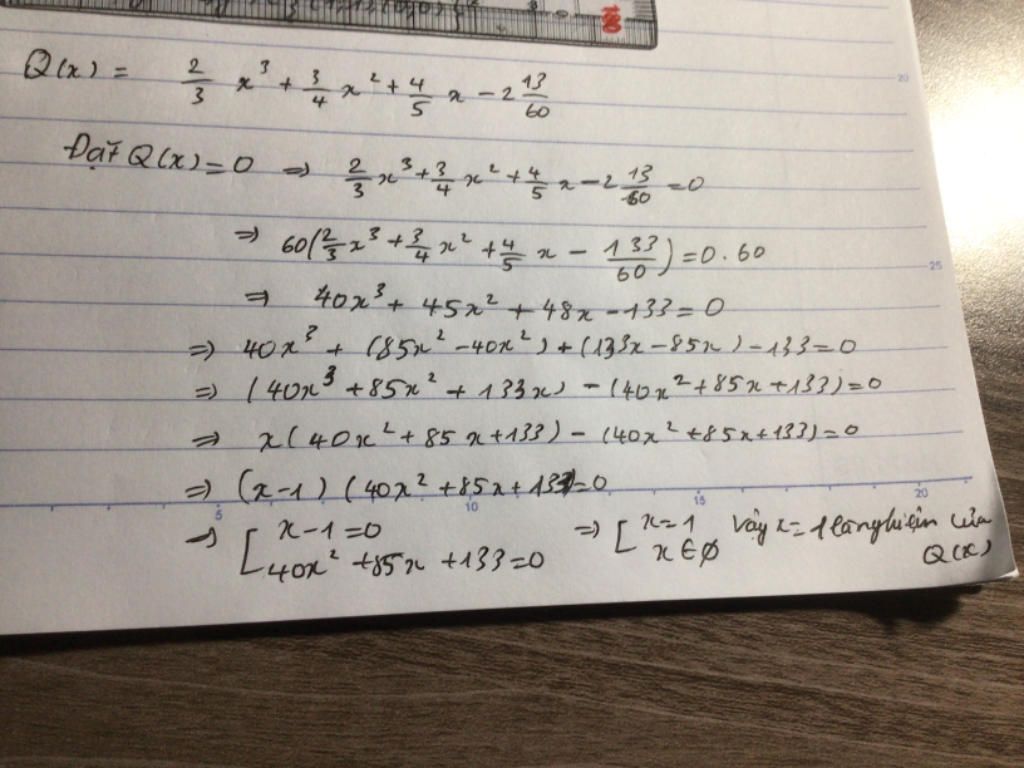 Q(x) = 2/3 x³ + 3/4 x² + 4/5 x - 2 13/60
Đặt Q(x) = 0 => 2/3 x³ + 3/4 x² + 4/5 x - 2 13/60 = 0
=> 60(2/3 x³ + 3/4 x² + 4/5 x - 133/60) = 0.60
=> 40x³ + 45x² + 48x - 133 = 0
=> 40x³ + (85x² - 40x²) + (133x - 85x) - 133 = 0
=> (40x³ + 85x² + 133x) - (40x² + 85x + 133) = 0
=> x(40x² + 85x + 133) - (40x² + 85x + 133) = 0
=> (x-1) (40x² + 85x + 133) = 0
=> [ x - 1 = 0 => [ x = 1 Vậy x = 1 là nghiệm của
40x² + 85x + 133 = 0 x ∈ ∅ Q(x)
20
25
5
10
15
20